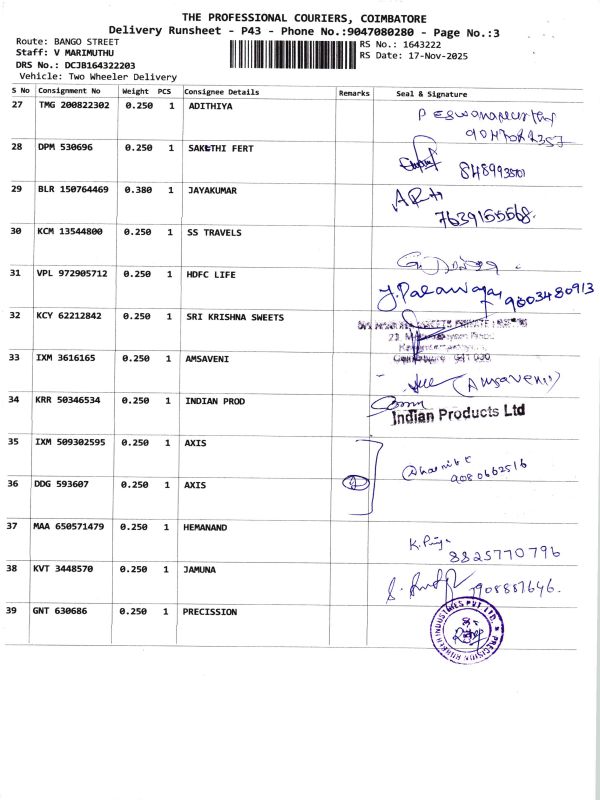 THE PROFESSIONAL COURIERS, COIMBATORE
Delivery Runsheet - P43 - Phone No.:9047080280 - Page No.:3
Route: BANGO STREET
RS No.: 1643222
Staff: V MARIMUTHU
RS Date: 17-Nov-2025
DRS No.: DCJB164322203
Vehicle: Two Wheeler Delivery
S No Consignment No Weight PCS Consignee Details Remarks Seal & Signature
27 TMG 200822302 0.250 1 ADITHIYA
28 DPM 530696 0.250 1 SAKTHI FERT
29 BLR 150764469 0.380 1 JAYAKUMAR
30 KCM 13544800 0.250 1 SS TRAVELS
31 VPL 972905712 0.250 1 HDFC LIFE
J. 9003480913
32 KCY 62212842 0.250 1 SRI KRISHNA SWEETS
33 IXM 3616165 0.250 1 AMSAVENI
(Amsaveni)
34 KRR 50346534 0.250 1 INDIAN PROD
Indian Products Ltd
35 IXM 509302595 0.250 1 AXIS
9080662516
36 DDG 593607 0.250 1 AXIS
2
37 MAA 650571479 0.250 1 HEMANAND
K. Priya
8825770796
38 KVT 3448570 0.250 1 JAMUNA
39 GNT 630686 0.250 1 PRECISSION